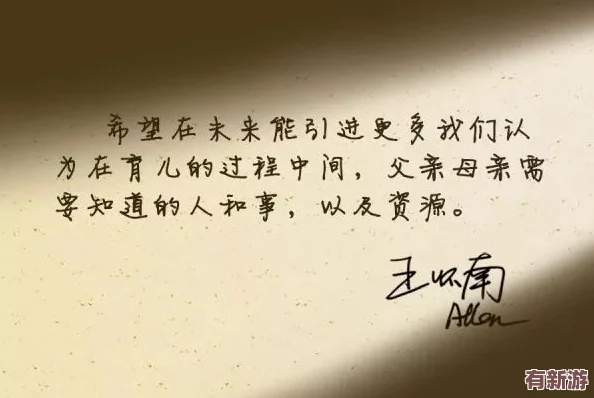 希望在未来能引进更多我们认
为在育儿的过程中间，父亲母亲需
要知道的人和事，以及资源。
王怀南
Allen
有新游